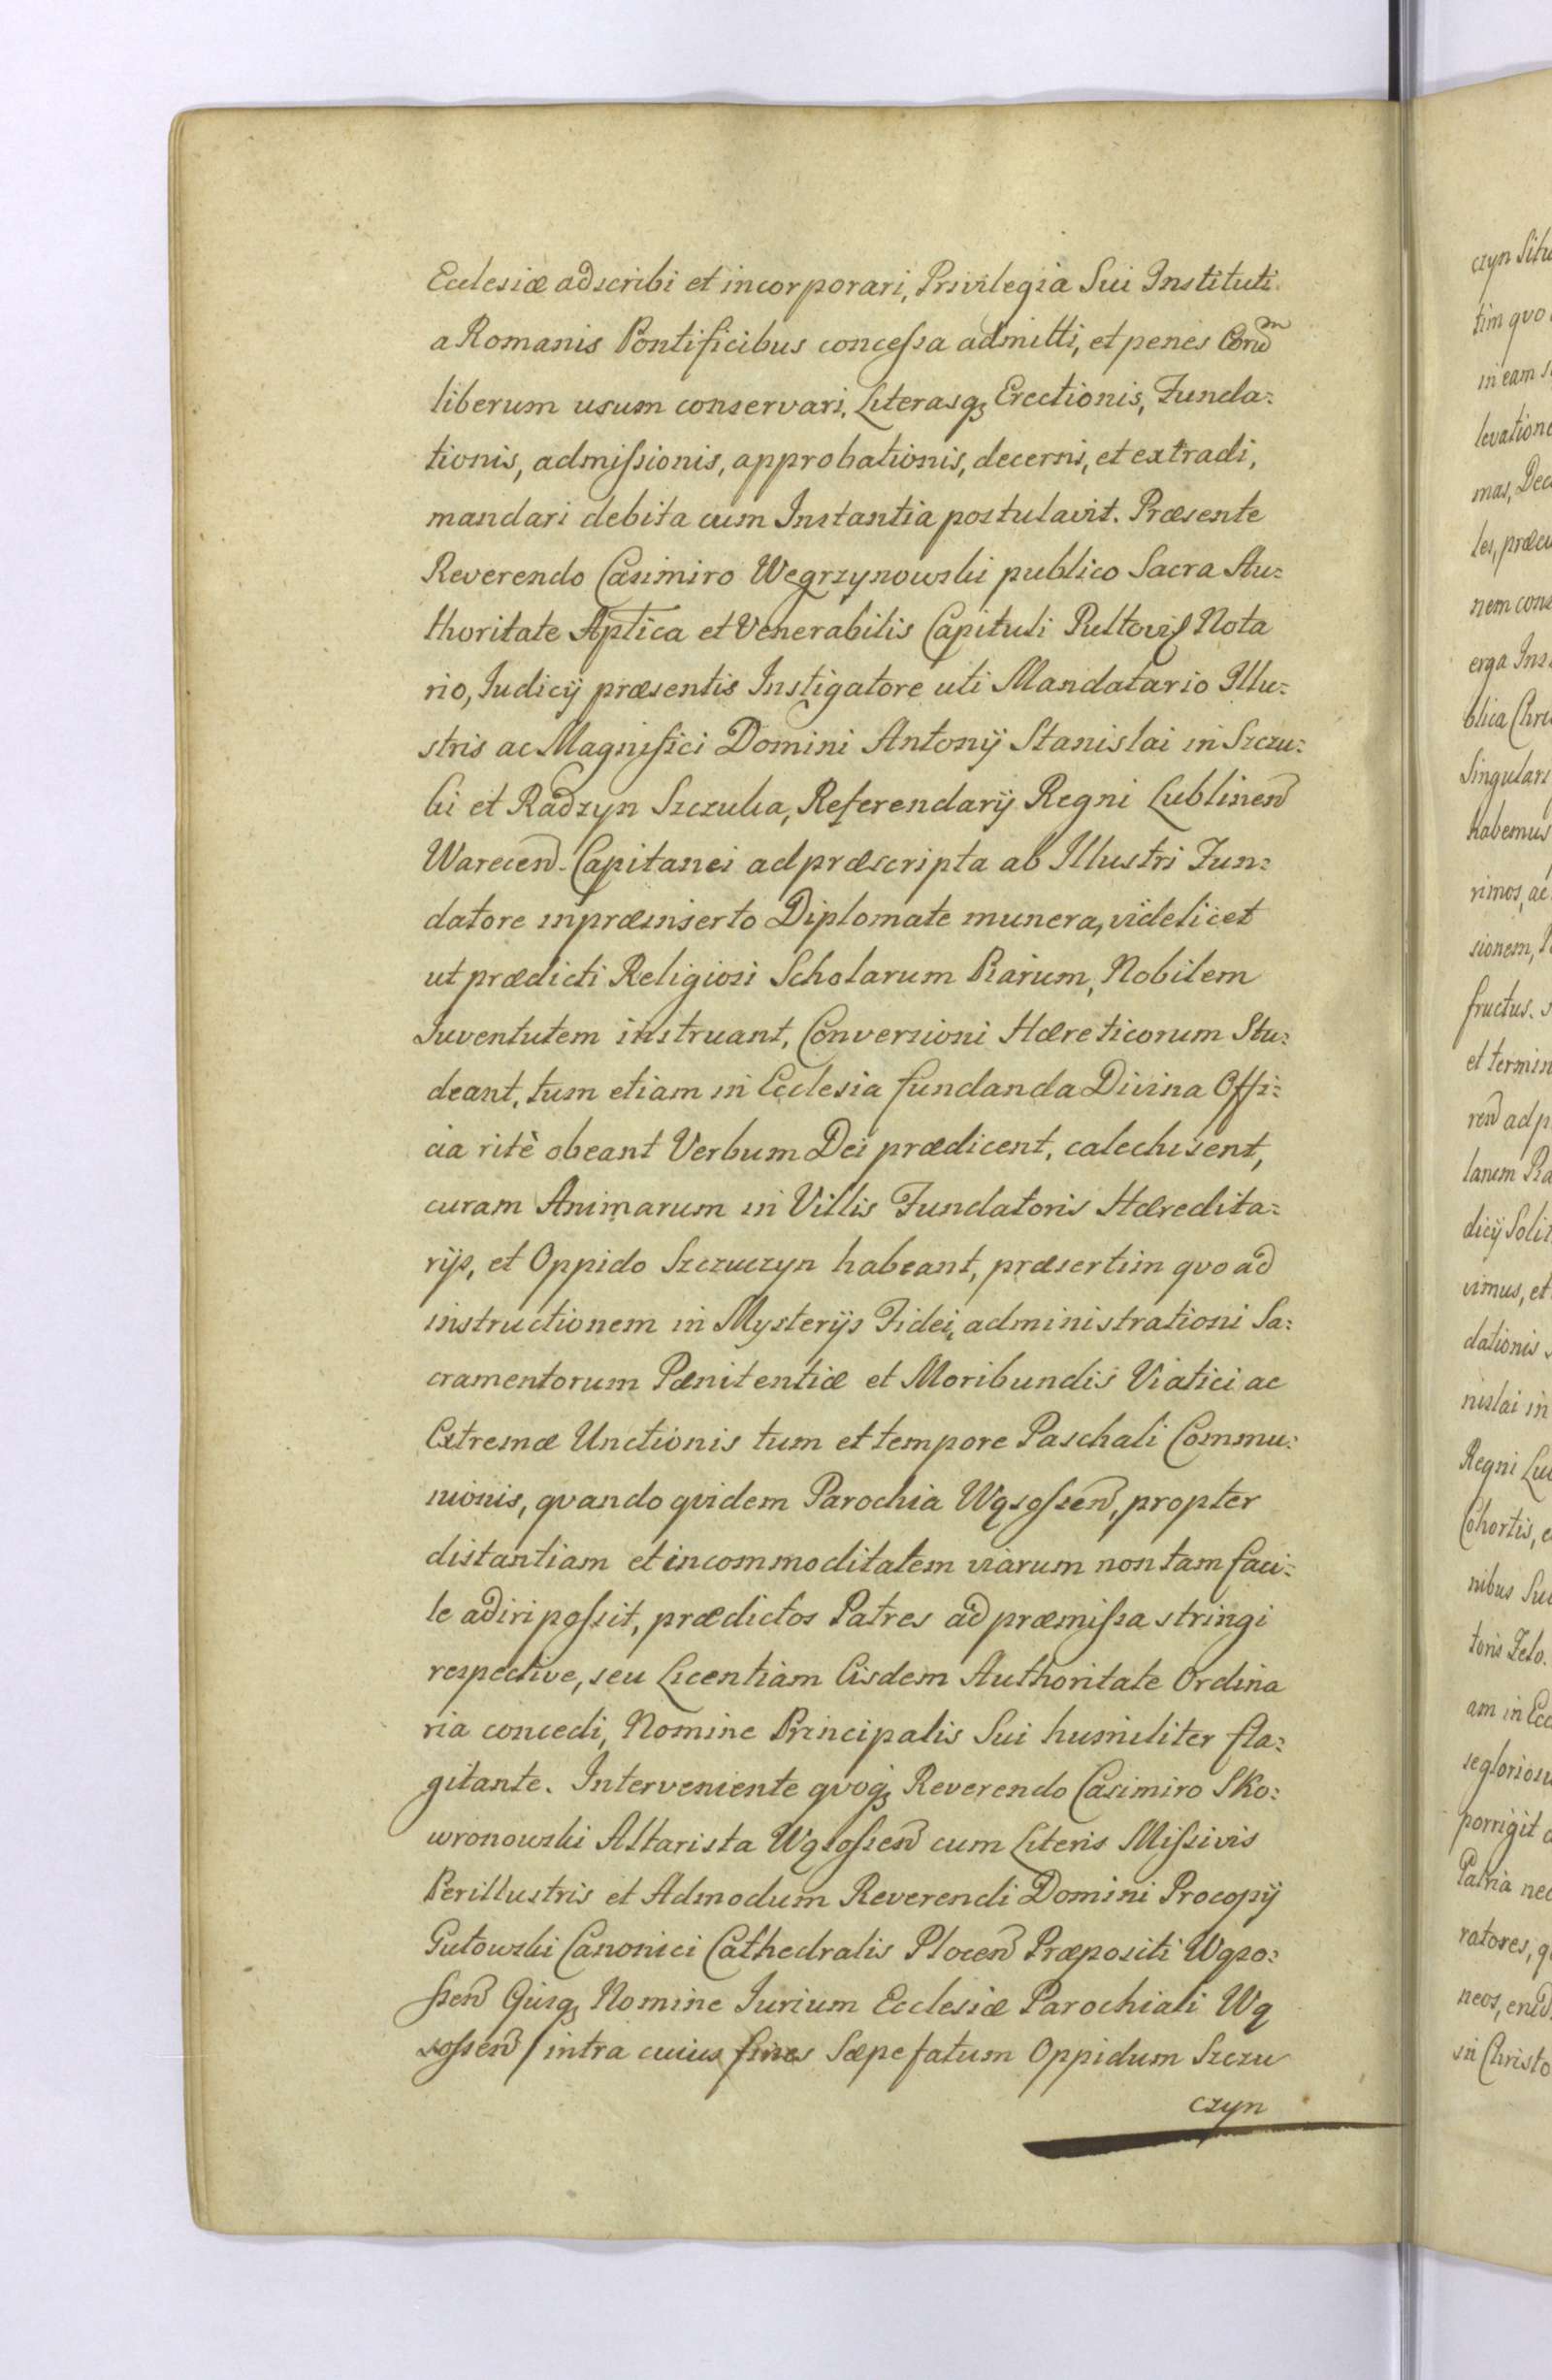 Ecclesiæ adscribi et incorporari, Privilegia Sui Instituti
a Romanis Pontificibus conceſsa admitti, et penes
liberum usum conservari, Literasq3 Erectionis, Funda:
tionis, admiſsionis, approbationis, decerni, et extradi,
mandari debita cum Instantia postulavit. Præsente
Reverendo Casimiro Wegrzynowski publico Sacra Au:
thoritate Aptica et Venerabilis Capituli Pultovis Nota
rio, Iudicÿ præsentis Instigatore uti Mandatario Illu:
stris ac Magnifici Domini Antonÿ Stanislai in Szczu:
ki et Radzyn Szczuka, Referendarÿ Regni Lublinen
Warecen. Capitanei ad præscripta ab Illustri Fun:
datore in præinserto Diplomate munera, videlicet
ut prædicti Religiosi Scholarum Piarum, Nobilem
Iuventutem instruant, Conversioni Hæreticorum Stu:
deant, tum etiam in Ecclesia fundanda Divina Offi:
cia ritè obeant Verbum Dei prædicent, catechisent,
curam Animarum in Villis Fundatoris Hæredita:
rÿs, et Oppido Szczuczyn habeant, præsertim quo ad
instructionem in Mysterÿs Fidei, administrationi Sa:
cramentorum Pænitentiæ et Moribundis Viatici ac
Extremæ Unctionis tum et tempore Paschali Commu:
nionis, quando quidem Parochia Wąsoſzen, propter
distantiam et incommoditatem viarum non tam faci:
le adiri poſsit, prædictos Patres ad præmiſsa stringi
respective, seu Licentiam Eisdem Authoritate Ordina
ria concedi, Nomine Principalis Sui humiliter fla:
gitante. Interveniente quoq3 Reverendo Casimiro Sko:
wronowski Altarista Wąsoſzen cum Literis Miſsivis
Perillustris et Admodum Reverendi Domini Procopÿ
Gutowski Canonici Cathedralis Plocen Præpositi Wąso:
ſzen Ejusq3 Nomine Iurium Ecclesiæ Parochiali Wą
soſzen / intra cuius fines Sæpefatum Oppidum Szczu
czyn
czyn Situ
tim quo
in eam s
levatione
mas, Dec
les, præcu
nem cons
erga Ins
blica Chri
Singulari
habemus
rimos, ac
sionem, P
fructus. s
et termin
ren ad p
lanem Pia
dicÿ Solit
vimus, et
dationis
nislai in
Regni Lu
Cohortis, e
nibus Su
toris Zelo.
am in Ecc
se gloriosu
porrigit
Patria nec
ratores, q
neos, enid
in Christo